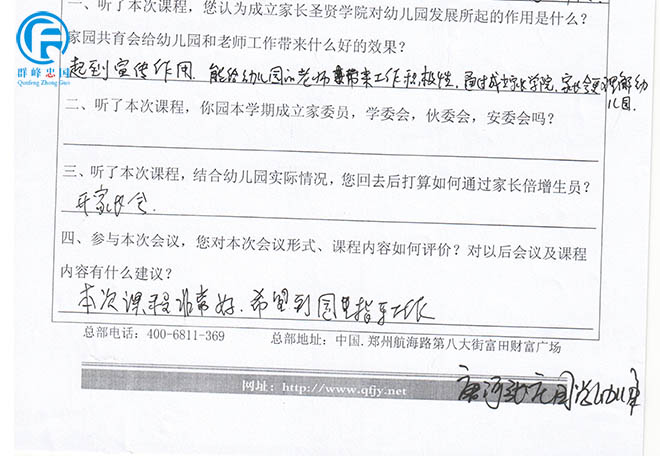 一、听了本次课程，您认为成立家长圣贤学院对幼儿园发展所起的作用是什么？
群峰忠国
Qunfeng Zhong Guo
家园共育会给幼儿园和老师工作带来什么好的效果？
起到宣传作用．能给幼儿园的老师带来工作积极性．通过成立家长学院，家长会更理解幼
儿园．
二、听了本次课程，你园本学期成立家委员，学委会，伙委会，安委会吗？
三、听了本次课程，结合幼儿园实际情况，您回去后打算如何通过家长倍增生员？
开家长会．
四、参与本次会议，您对本次会议形式、课程内容如何评价？对以后会议及课程
内容有什么建议？
本次课程非常好．希望到园里指导工作
总部电话：400-6811-369 总部地址：中国.郑州航海路第八大街富田财富广场
网址：http://www.qfjy.net